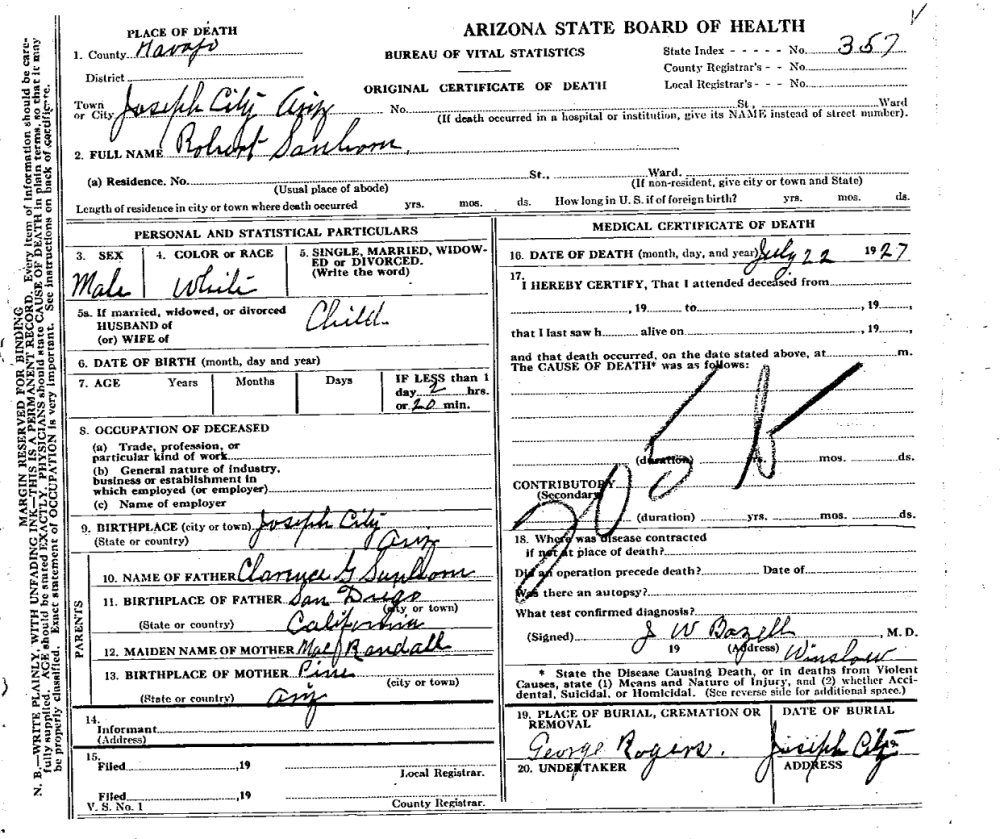 PLACE OF DEATH
1. County Navajo
District
Town or City Joseph City Ariz No. St., Ward
(If death occurred in a hospital or institution, give its NAME instead of street number).
ARIZONA STATE BOARD OF HEALTH
BUREAU OF VITAL STATISTICS
ORIGINAL CERTIFICATE OF DEATH
State Index - - - - - No. 357
County Registrar's - - No.
Local Registrar's - - - No.
2. FULL NAME Robert
(a) Residence. No. St., Ward.
(Usual place of abode) (If non-resident, give city or town and State)
Length of residence in city or town where death occurred yrs. mos. ds. How long in U. S. if of foreign birth? yrs. mos. ds.
PERSONAL AND STATISTICAL PARTICULARS
3. SEX
Male
4. COLOR or RACE
White
5. SINGLE, MARRIED, WIDOW-
ED or DIVORCED.
(Write the word)
Child
5a. If married, widowed, or divorced
HUSBAND of
(or) WIFE of
6. DATE OF BIRTH (month, day and year)
7. AGE Years Months Days IF LESS than 1
day 2 hrs.
or 20 min.
8. OCCUPATION OF DECEASED
(a) Trade, profession, or
particular kind of work
(b) General nature of industry,
business or establishment in
which employed (or employer)
(c) Name of employer
9. BIRTHPLACE (city or town) Joseph City
(State or country) Ariz
PARENTS
10. NAME OF FATHER Clarence G
11. BIRTHPLACE OF FATHER San Diego
(city or town)
(State or country) California
12. MAIDEN NAME OF MOTHER Mae Randall
13. BIRTHPLACE OF MOTHER Pine
(city or town)
(State or country) Ariz
14.
Informant
(Address)
15.
Filed ,19
Local Registrar.
Filed ,19
V. S. No. 1 County Registrar.
MEDICAL CERTIFICATE OF DEATH
16. DATE OF DEATH (month, day, and year) July 22 1927
17.
I HEREBY CERTIFY, That I attended deceased from
, 19 to , 19 ,
that I last saw h alive on , 19 ,
and that death occurred, on the date stated above, at m.
The CAUSE OF DEATH* was as follows:
205b
(duration) yrs. mos. ds.
CONTRIBUTORY
(Secondary)
(duration) yrs. mos. ds.
18. Where was disease contracted
if not at place of death?
Did an operation precede death? Date of
Was there an autopsy?
What test confirmed diagnosis?
(Signed) J W Bazell , M. D.
19 (Address) Winslow
* State the Disease Causing Death, or in deaths from Violent
Causes, state (1) Means and Nature of Injury, and (2) whether Acci-
dental, Suicidal, or Homicidal. (See reverse side for additional space.)
19. PLACE OF BURIAL, CREMATION OR
REMOVAL
DATE OF BURIAL
George Rogers. Joseph City
20. UNDERTAKER ADDRESS
MARGIN RESERVED FOR BINDING
N. B.—WRITE PLAINLY, WITH UNFADING INK—THIS IS A PERMANENT RECORD. Every item of information should be care-
fully supplied. AGE should be stated EXACTLY. PHYSICIANS should state CAUSE OF DEATH in plain terms, so that it may
be properly classified. Exact statement of OCCUPATION is very important. See instructions on back of certificate.